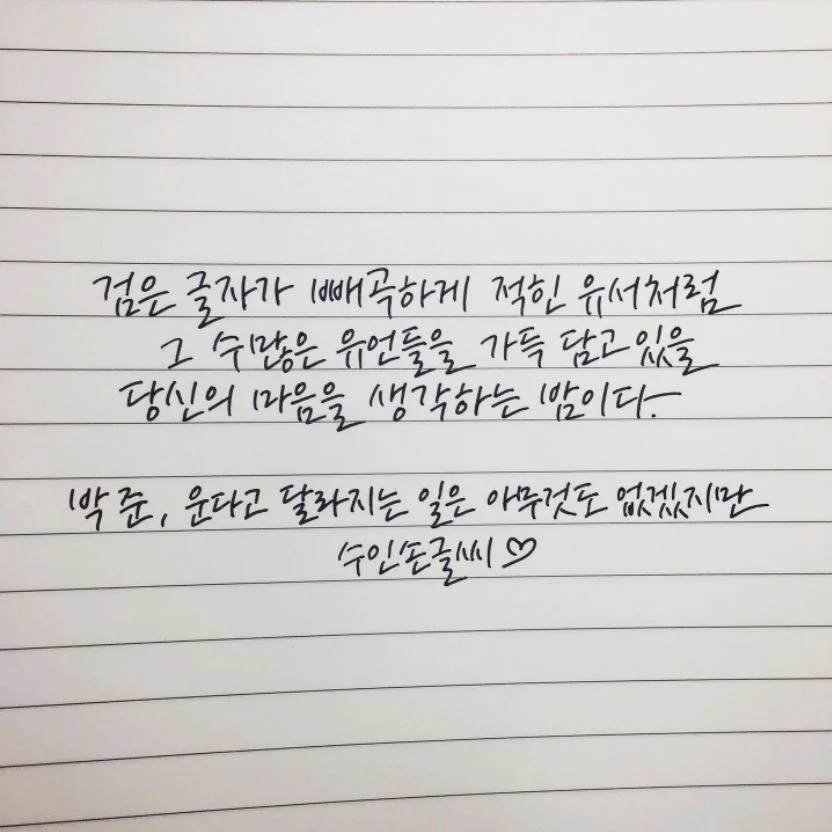 검은 글자가 빼곡하게 적힌 유서처럼
그 수많은 유언들을 가득 담고 있을
당신의 마음을 생각하는 밤이다.
박준, 운다고 달라지는 일은 아무것도 없겠지만
수인손글씨 ♡